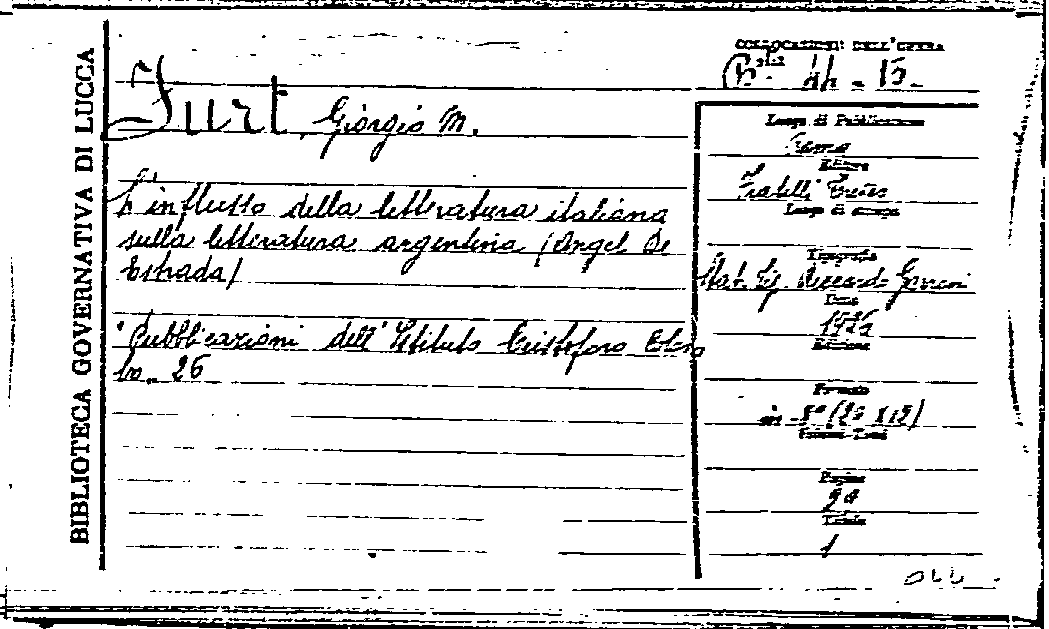 BIBLIOTECA GOVERNATIVA DI LUCCA
COLLOCAZIONE DELL'OPERA
44 - 15.
Furt Giorgio M.
L'influsso della letteratura italiana
sulla letteratura argentina (Angel De
Estrada)
Pubblicazioni dell'Istituto Cristoforo Colom
bo. 26
Luogo di Pubblicazione
Roma
Editore
Fratelli Treves
Luogo di stampa
Tipografia
Stab. Tip. Riccardo Garroni
Data
1926
Edizione
Formato
in -8°
Pagine
90
1